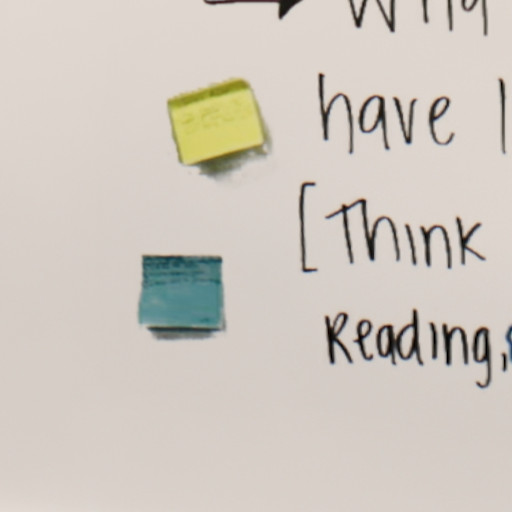 have I
[Think
Reading,